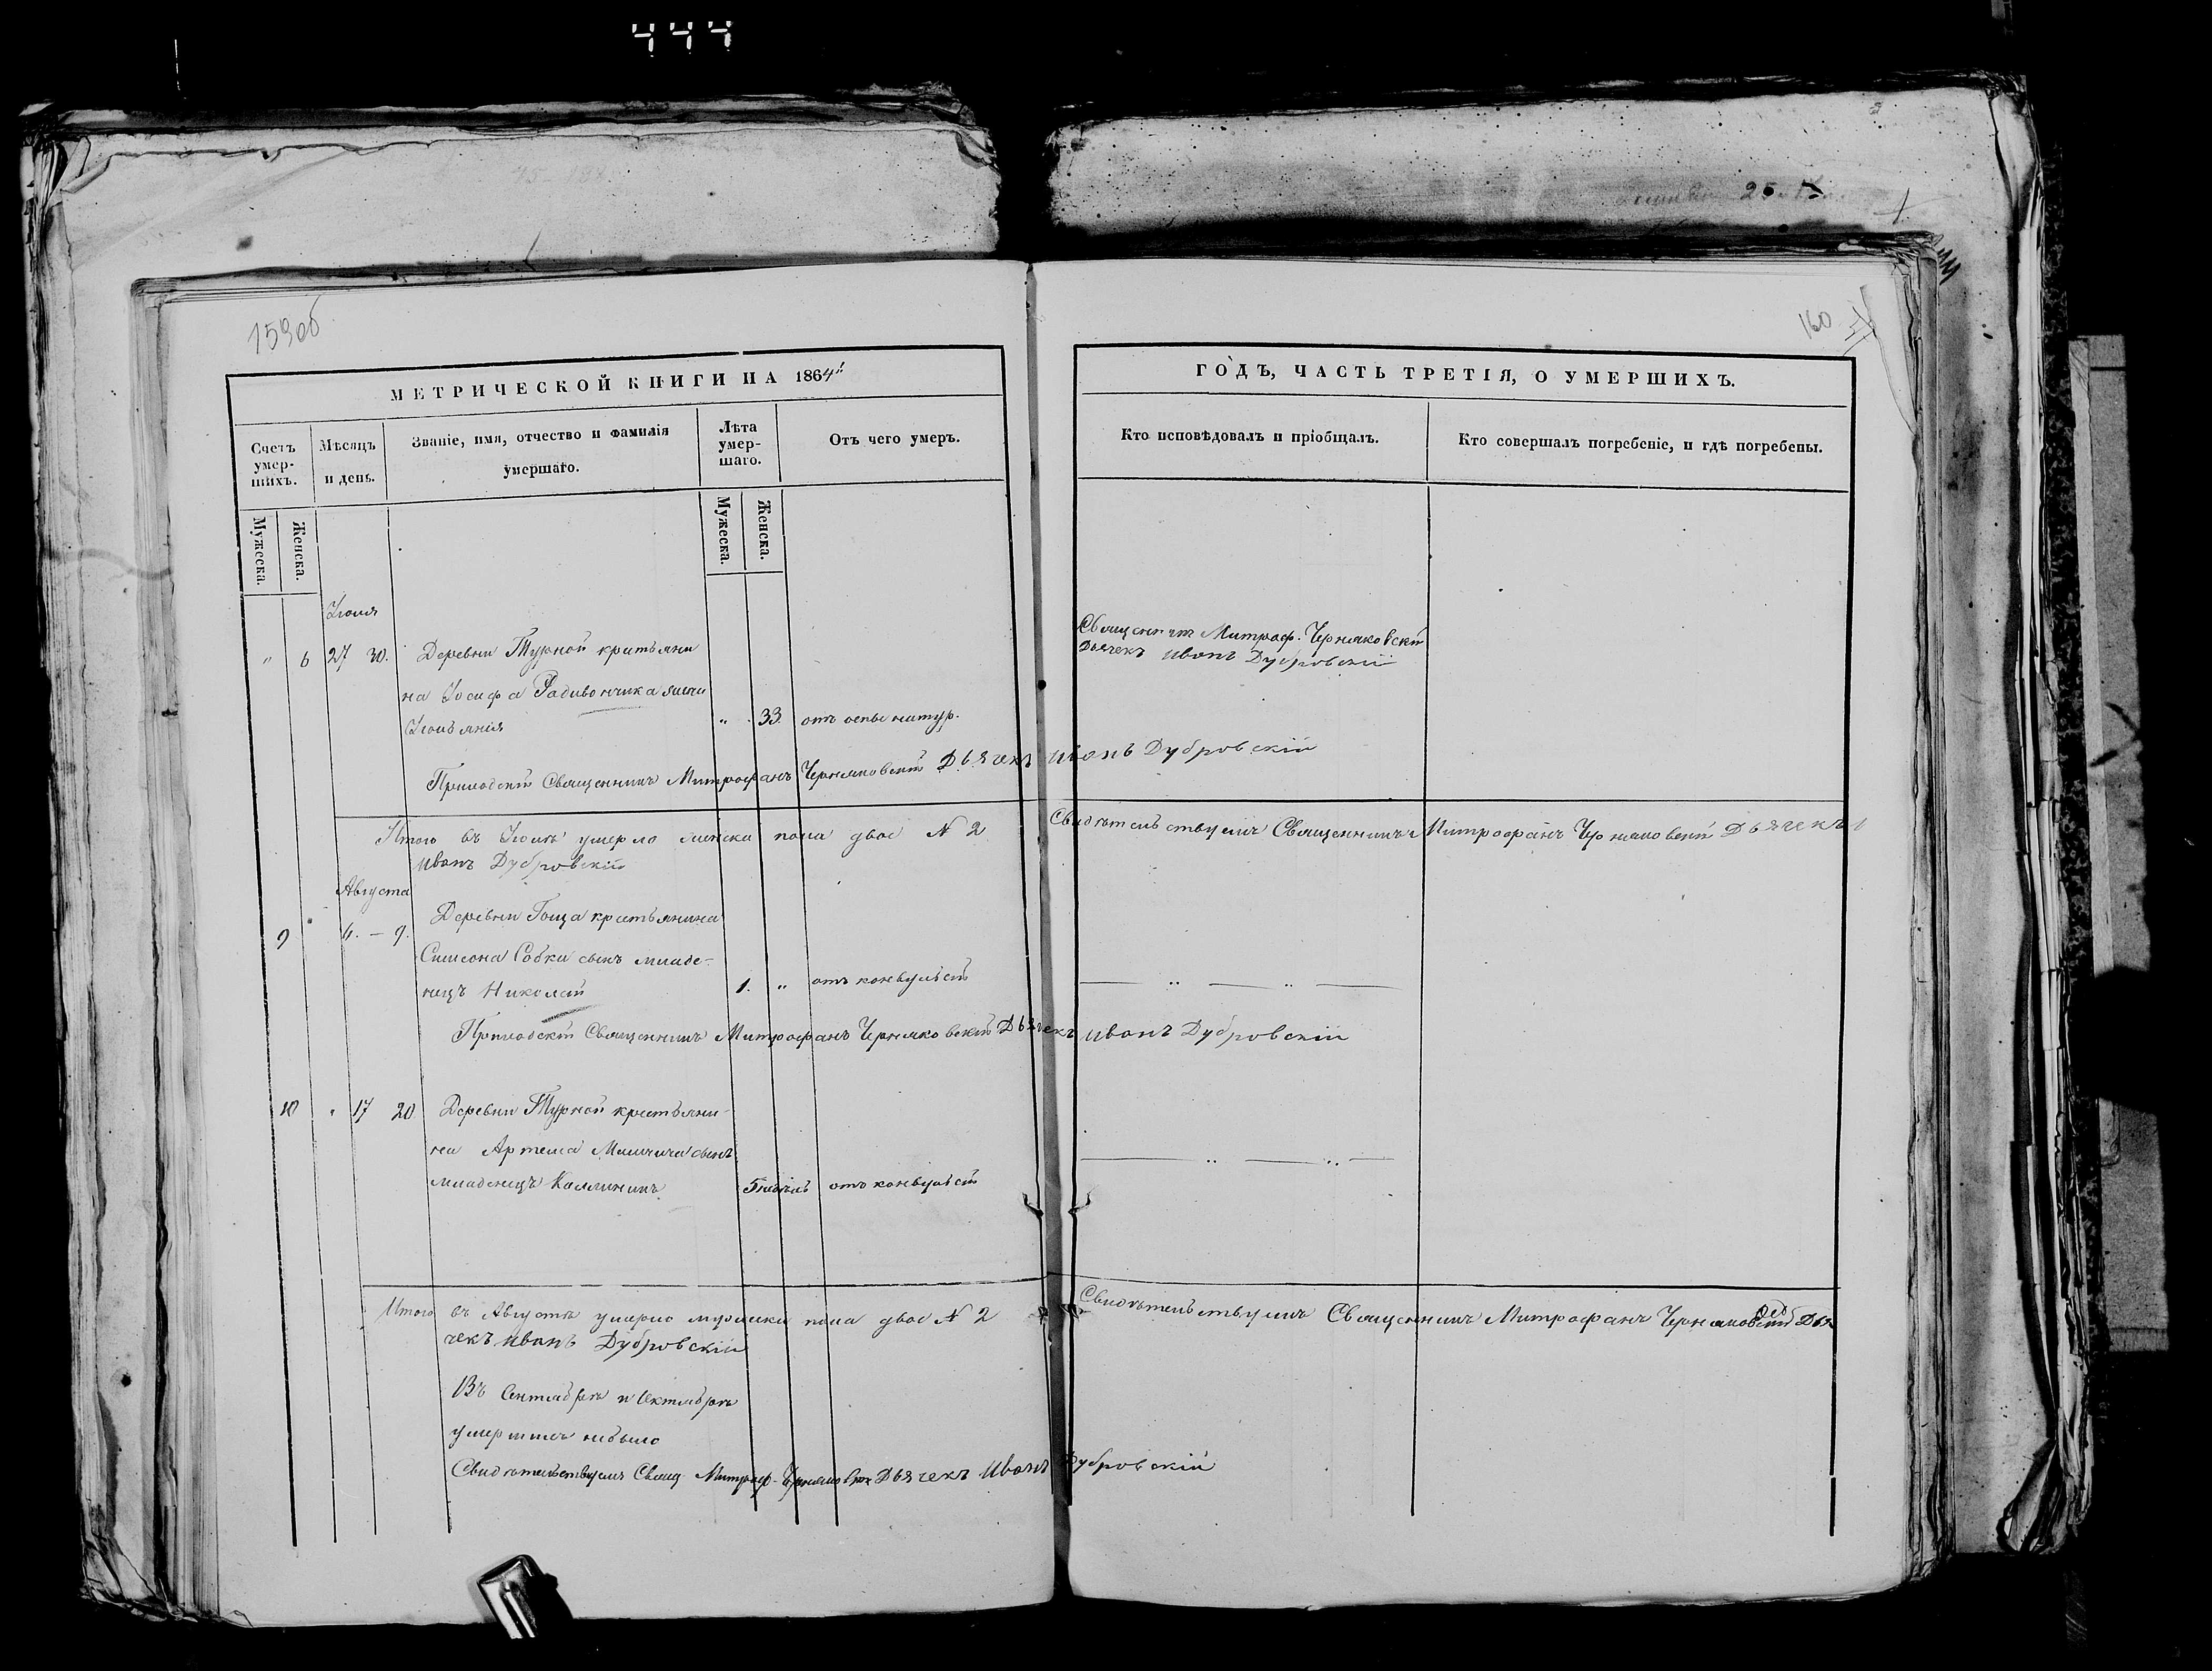 444
159об
160
МЕТРИЧЕСКОЙ КНИГИ НА 1864й
Счетъ умер-шихъ.
Мѣсяцъ и день.
Званіе, имя, отчество и фамилія умершаго.
Лѣта умер-шаго.
Отъ чего умеръ.
Мужеска.
Женска.
Мужеска.
Женска.
Іюля
" 6 27 30. Деревни Турной кретьяни
на Іосифа Радивончика
" 33 отъ оспы натур.
Приходскій Священникъ Митрофанъ Черняковскій Дьячекъ Иванъ Дубровскій
Итого въ Іюлѣ умерло женска пола двое N 2
Иванъ Дубровскій
Августа
9 6. — 9. Деревни Гоща крестьянина
Симеона Собки сынъ младе-
нецъ Николай 1. " отъ конвульсій
Приходскій Священникъ Митрофанъ Черняковскій Дьячекъ Иванъ Дубровскій
10 " 17 20 Деревни Турной крестьяни-
на Артема сынъ
младенецъ Каллиникъ отъ конвульсій
Итого въ Августѣ умерло мужеска пола двое N 2
чекъ Иванъ Дубровскій
Въ Сентябрѣ и Октябрѣ
умершихъ небыло
Свидѣтельствуемъ Свящ. Митроф. Дьячекъ Иванъ Дубровскій
ГОДЪ, ЧАСТЬ ТРЕТІЯ, О УМЕРШИХЪ.
Кто исповѣдовалъ и пріобщалъ.
Кто совершалъ погребеніе, и гдѣ погребены.
Священникъ Митроф. Черняковскій
Дьячекъ Иванъ Дубровскій
Свидѣтельствуемъ Священникъ Митрофанъ Черняковскій Дьячекъ
Свидѣтельствуемъ Священникъ Митрофанъ Черняковскій Дья